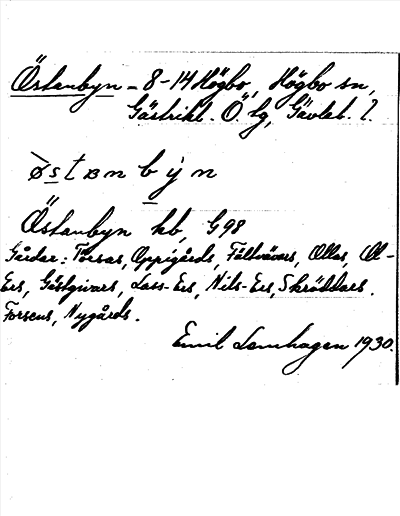 Östanbyn – 8-14 Högbo, Högbo sn,
Gästrikl. Ö. tg, Gävleb. l.
östan býn
Östanbyn hb, G98
Gårdar: Törsas, Oppigårds, Fältvävars, Olles, Ol-
Ers, Gästgivars, Lass-Ers, Nils-Ers, Skräddars.
Forsens, Nygårds.
Emil Lamhagen 1930.